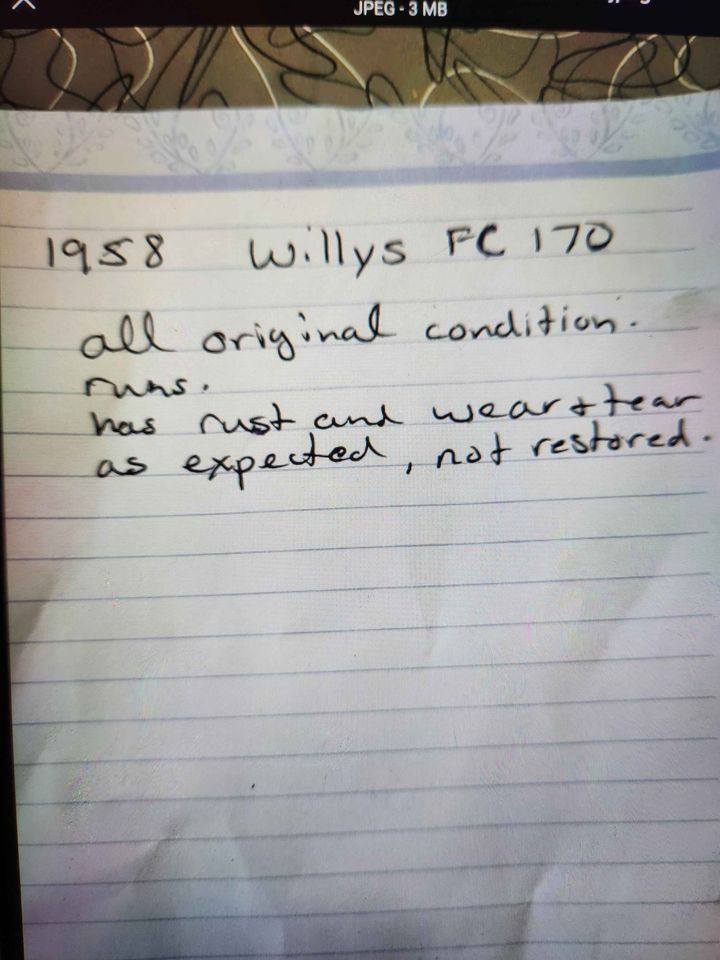 JPEG - 3 MB
1958 Willys FC 170
all original condition.
runs.
has rust and wear & tear
as expected, not restored.